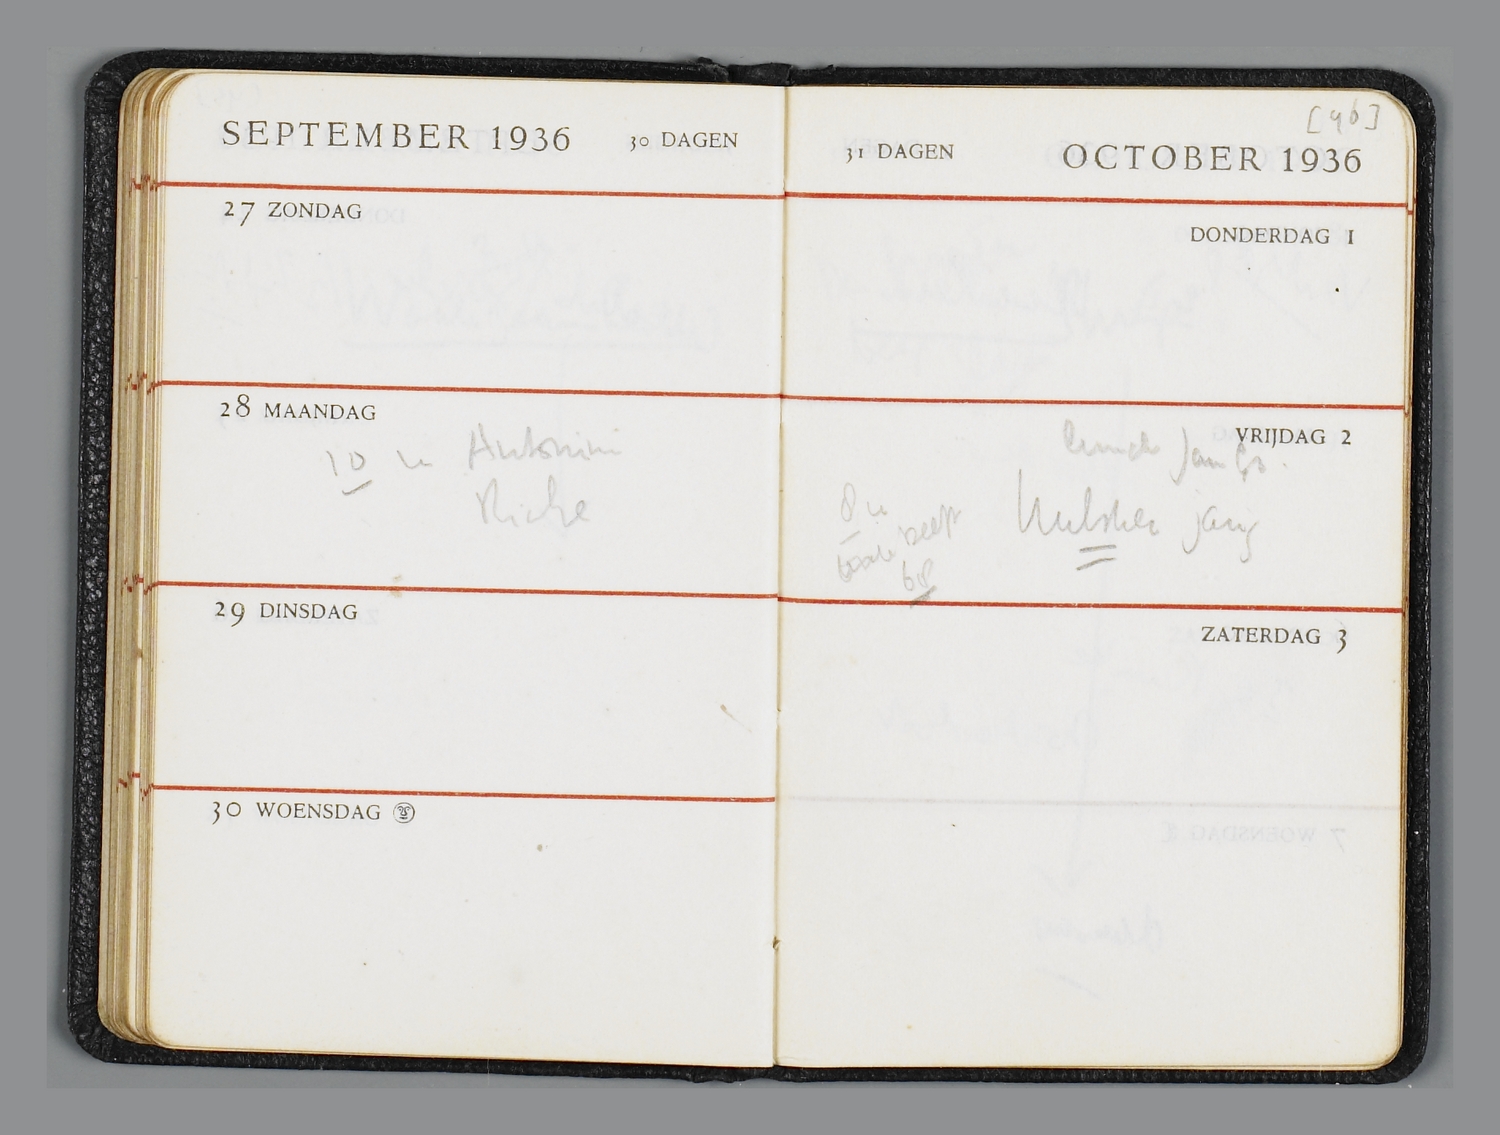 SEPTEMBER 1936 30 DAGEN
27 ZONDAG
28 MAANDAG
10 u Antonini
29 DINSDAG
30 WOENSDAG
[96]
31 DAGEN OCTOBER 1936
DONDERDAG 1
VRIJDAG 2
lunch
8 u
jarig
68
ZATERDAG 3